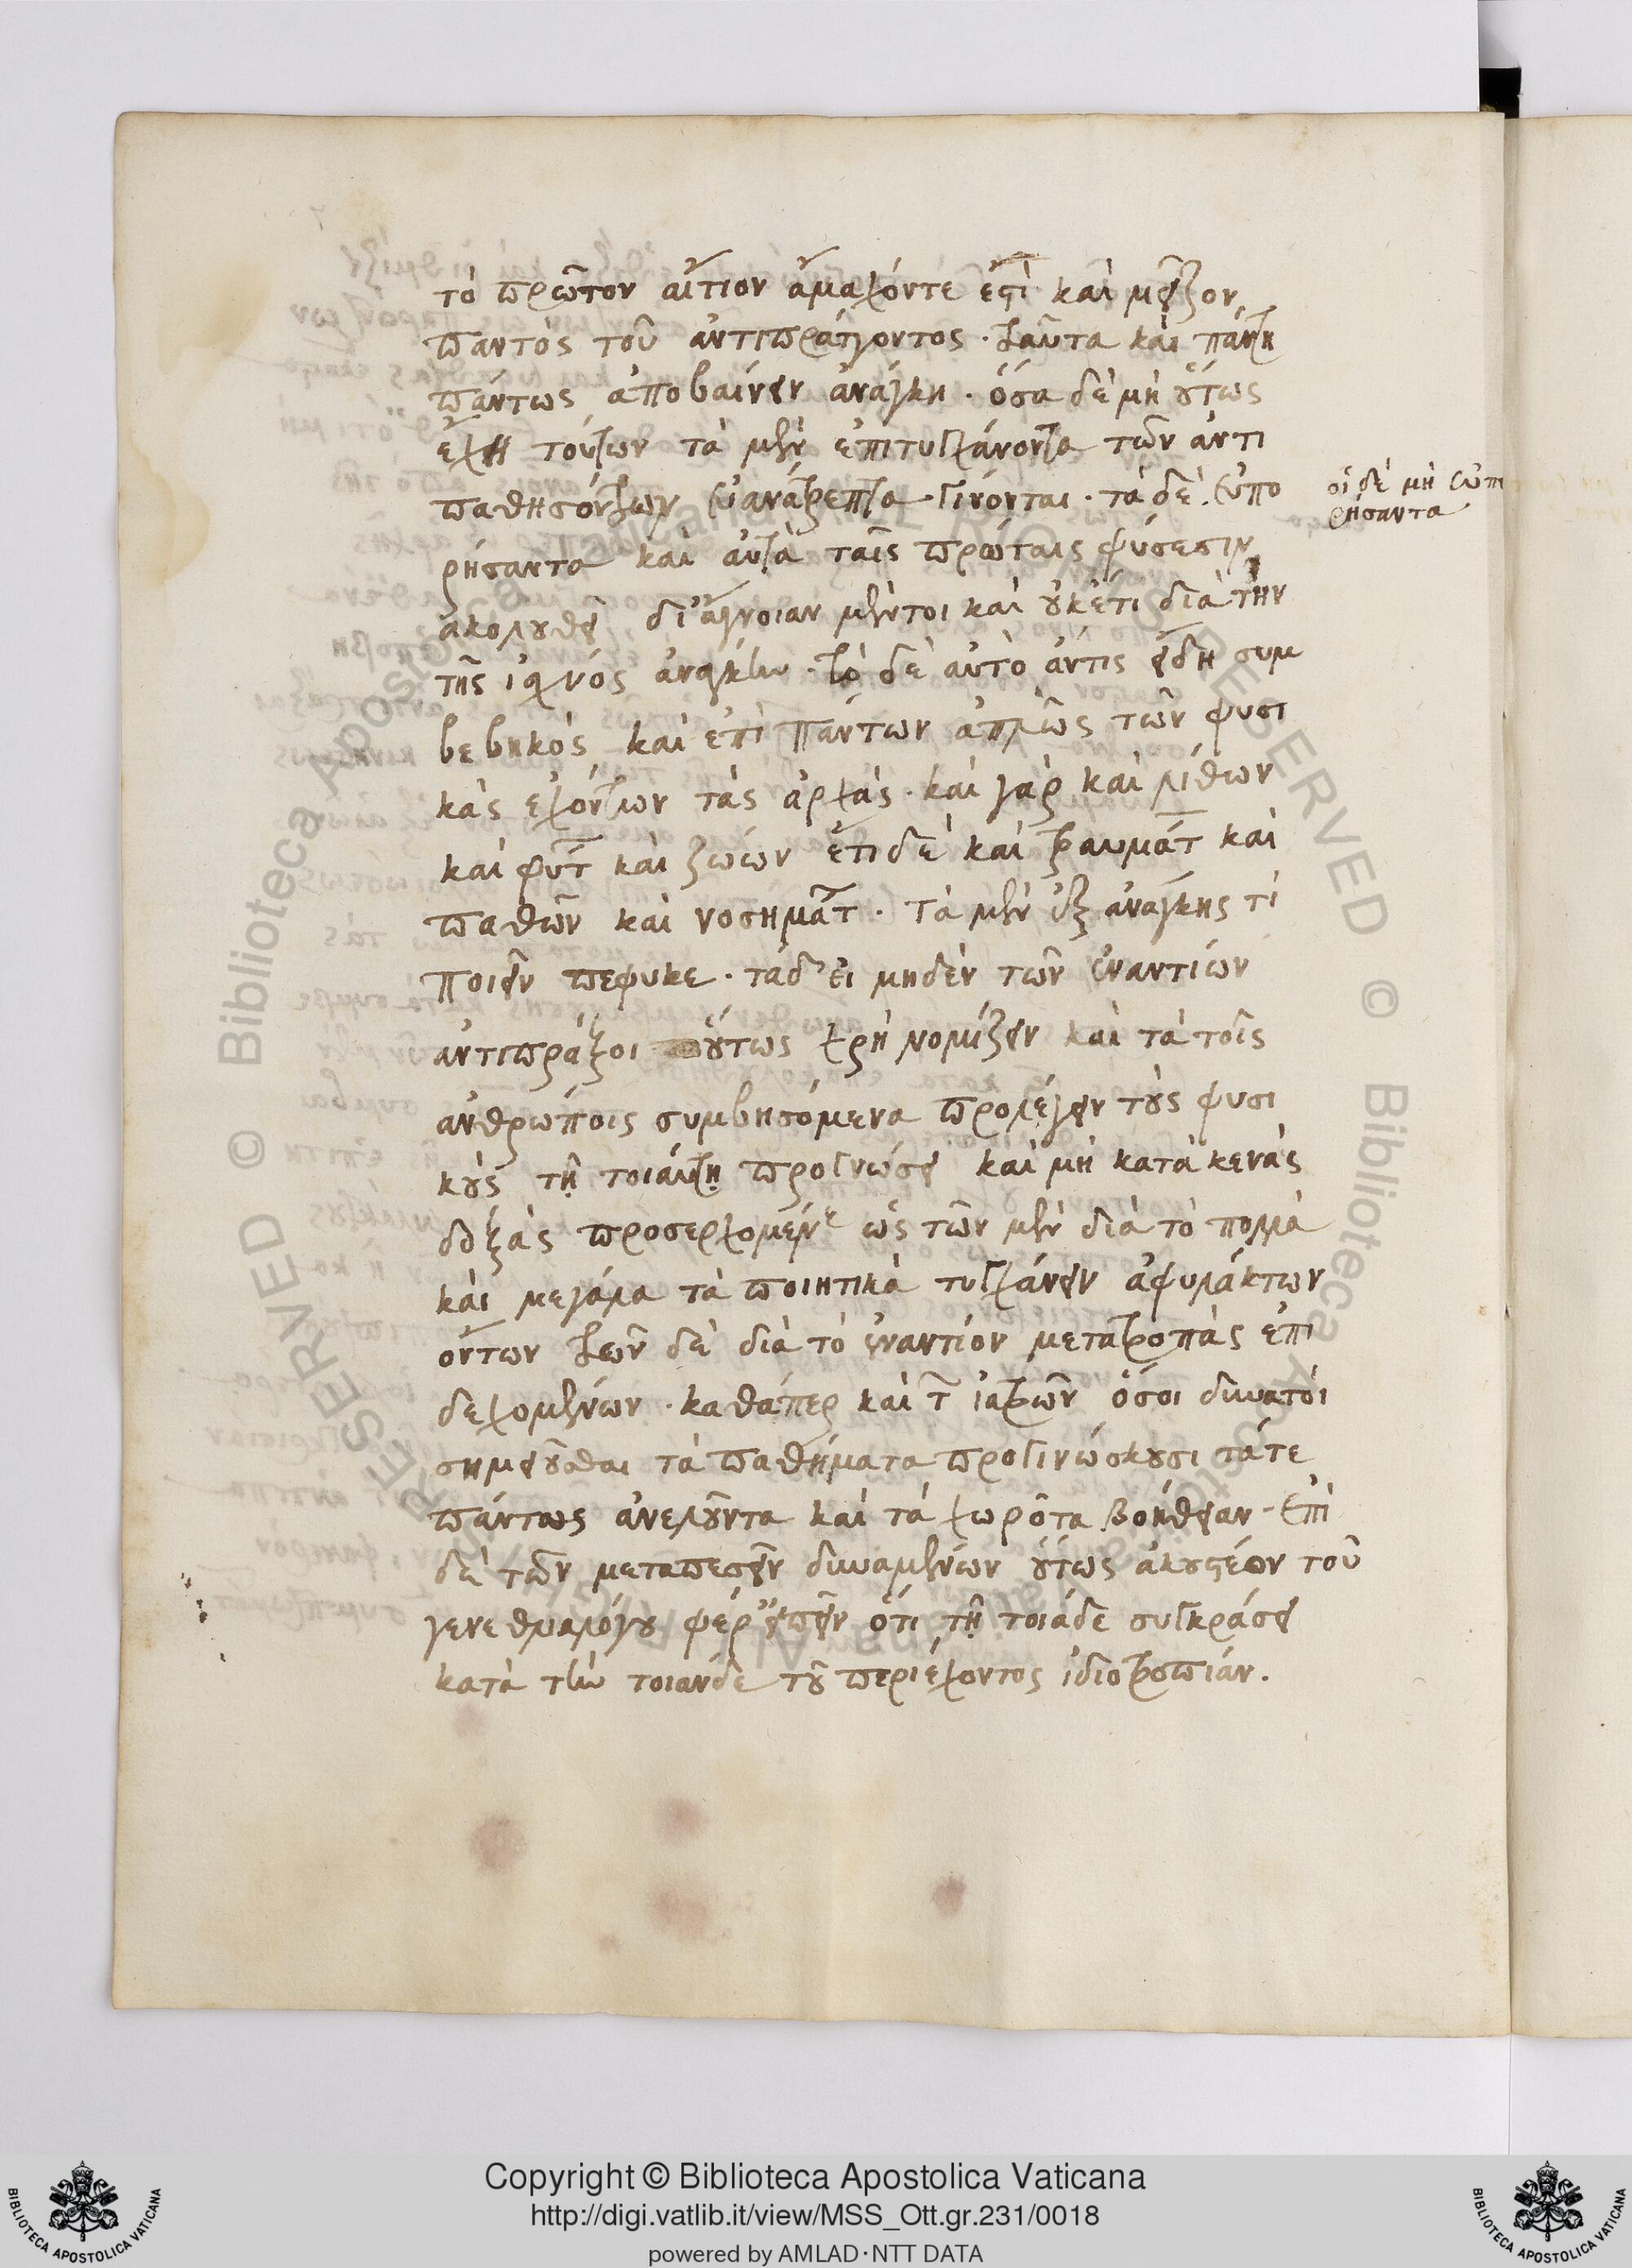 τὸ πρῶτον αἴτιον ἄμαχόντε ἐστὶ καὶ μεῖζον
παντὸς τοῦ ἀντιπράττοντος · ταῦτα καὶ πάντη
πάντως ἀποβαίνειν ἀνάγκη · ὅσα δὲ μὴ οὕτως
ἔχῃ τούτων τὰ μὲν ἐπιτυγχάνοντα τῶν ἀντι
παθησόντων εὐανάτρεπτα · γίνονται · τὰ δὲ εὐπο
ρήσαντα καὶ αὐτὰ ταῖς πρώταις φύσεσιν
ἀκολουθεῖ δι' ἄγνοιαν μέντοι καὶ οὐκέτι διὰ τὴν
τῆς ἰσχύος ἀνάγκην · τὸ δὲ αὐτὸ ἄντις εἴδη συμ
βεβηκὸς καὶ ἐπὶ πάντων ἁπλῶς τῶν φυσι
κὰς ἐχόντων τὰς ἀρχάς · καὶ γὰρ καὶ λίθων
καὶ φυτ καὶ ζώων ἔτι δὲ καὶ τραυμάτ καὶ
παθῶν καὶ νοσημάτ · τὰ μὲν ἐξ ἀνάγκης τί
ποιεῖν πέφυκε · τὰ δ' εἰ μηδὲν τῶν ἐναντίων
ἀντιπράξοι οὕτως χρὴ νομίζειν καὶ τὰ τοῖς
ἀνθρώποις συμβησόμενα προλέγειν τοὺς φυσι
κοὺς τῇ τοιαύτῃ προγνώσει καὶ μὴ κατὰ κενὰς
δόξας προσερχομέν ὡς τῶν μὲν διὰ τὸ πολλὰ
καὶ μεγάλα τὰ ποιητικὰ τυγχάνειν ἀφυλάκτων
ὄντων τῶν δὲ διὰ τὸ ἐναντίον μετατροπὰς ἐπι
δεχομένων · καθάπερ καὶ τ ἰατρῶν ὅσοι δυνατοὶ
σημειοῦσθαι τὰ παθήματα προγινώσκουσι τάτε
πάντως ἀνελοῦντα καὶ τὰ χωροῦτα βοήθειαν · ἐπὶ
δὲ τῶν μεταπεσεῖν δυναμένων οὕτως ἀκουστέον τοῦ
γενεθλιαλόγου φέρ' εἰπεῖν ὅτι τῇ τοιᾷδε συγκράσει
κατὰ τὴν τοιάνδε τοῦ περιέχοντος ἰδιοτροπίαν.
οἱ δὲ μὴ εὐπο
ρήσαντα
Copyright © Biblioteca Apostolica Vaticana
http://digi.vatlib.it/view/MSS_Ott.gr.231/0018
powered by AMLAD·NTT DATA